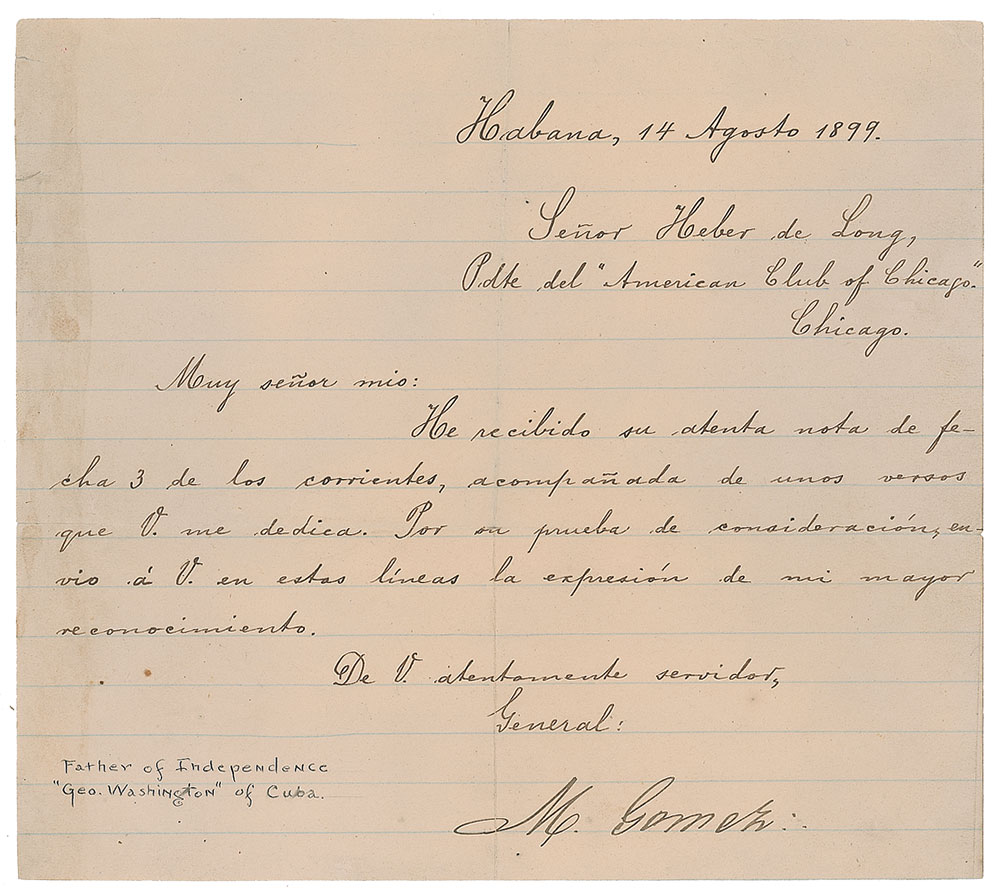 Habana, 14 Agosto 1899.
Señor Heber de Long,
Pdte del "American Club of Chicago."
Chicago.
Muy señor mio:
He recibido su atenta nota de fe-
cha 3 de los corrientes, acompañada de unos versos
que V. me dedica. Por su prueba de consideración, en-
vio á V. en estas líneas la expresión de mi mayor
reconocimiento.
De V. atentamente servidor,
General:
M. Gomez.
Father of Independence
"Geo. Washington" of Cuba.